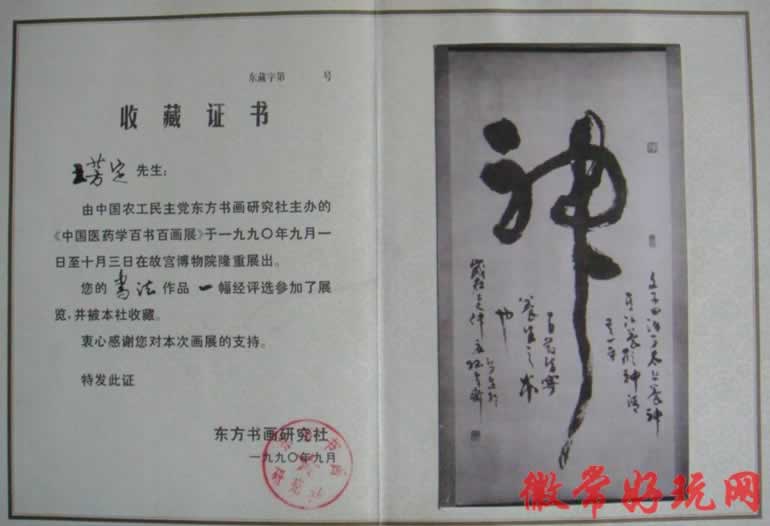 东藏字第 号
收藏证书
王芳定 先生：
由中国农工民主党东方书画研究社主办的
《中国医药学百书百画展》于一九九〇年九月一
日至十月三日在故宫博物院隆重展出。
您的 书法 作品 一 幅经评选参加了展
览，并被本社收藏。
衷心感谢您对本次画展的支持。
特发此证
东方书画研究社
一九九〇年九月
神
文子曰治身太上养神
其次养形神清
意平
百节皆宁
养生之本
也
徽常好玩网